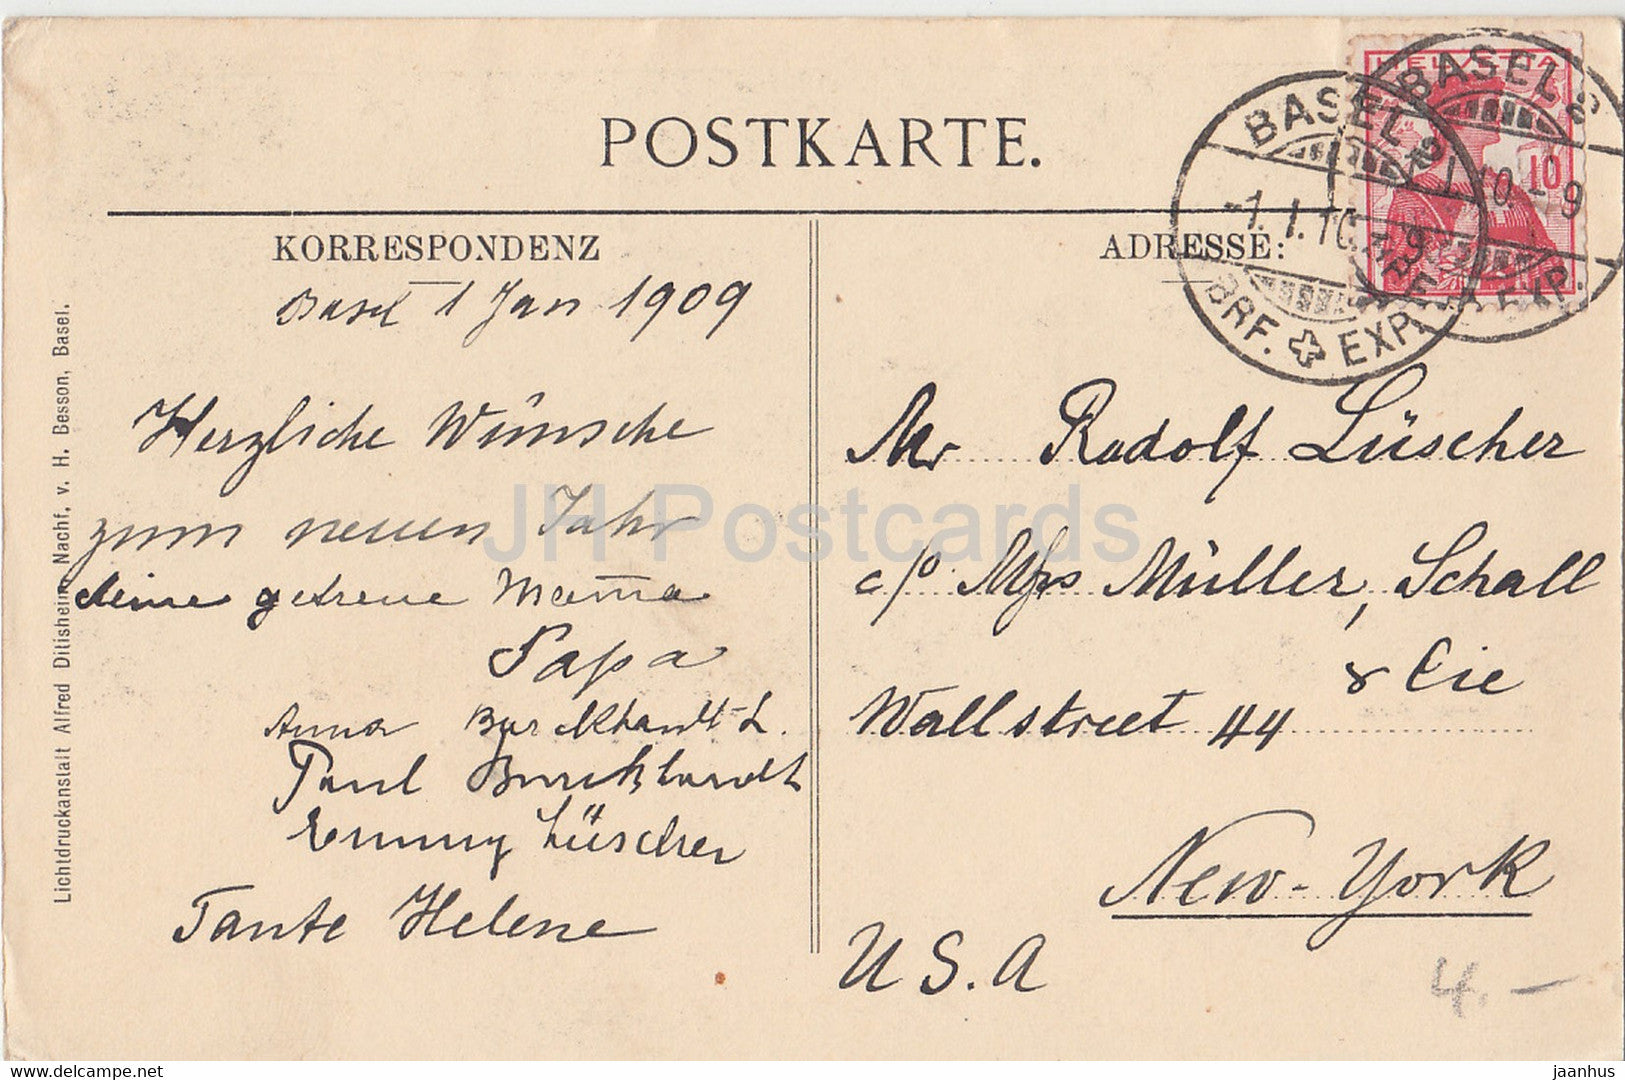 POSTKARTE.
KORRESPONDENZ
Basel 1 Jan 1909
Herzliche Wünsche
zum neuen Jahr
deine getreue Mama
Papa
Anna Burckhardt-L.
Paul Burckhardt
Emmy Lüscher
Tante Helene
Lichtdruckanstalt Alfred Ditisheim, Nachf. v. H. Besson, Basel.
ADRESSE:
Mr Rudolf Lüscher
c/o Mssrs Müller, Schall
& Cie
Wallstreet 44
New-York
U.S.A
4.-
HELVETIA
10
BASEL 9
-1.I.10.
BRF. EXP.
BASEL 9
I.10.-9
BRF. EXP.
JH Postcards
www.delcampe.net
jaanhus